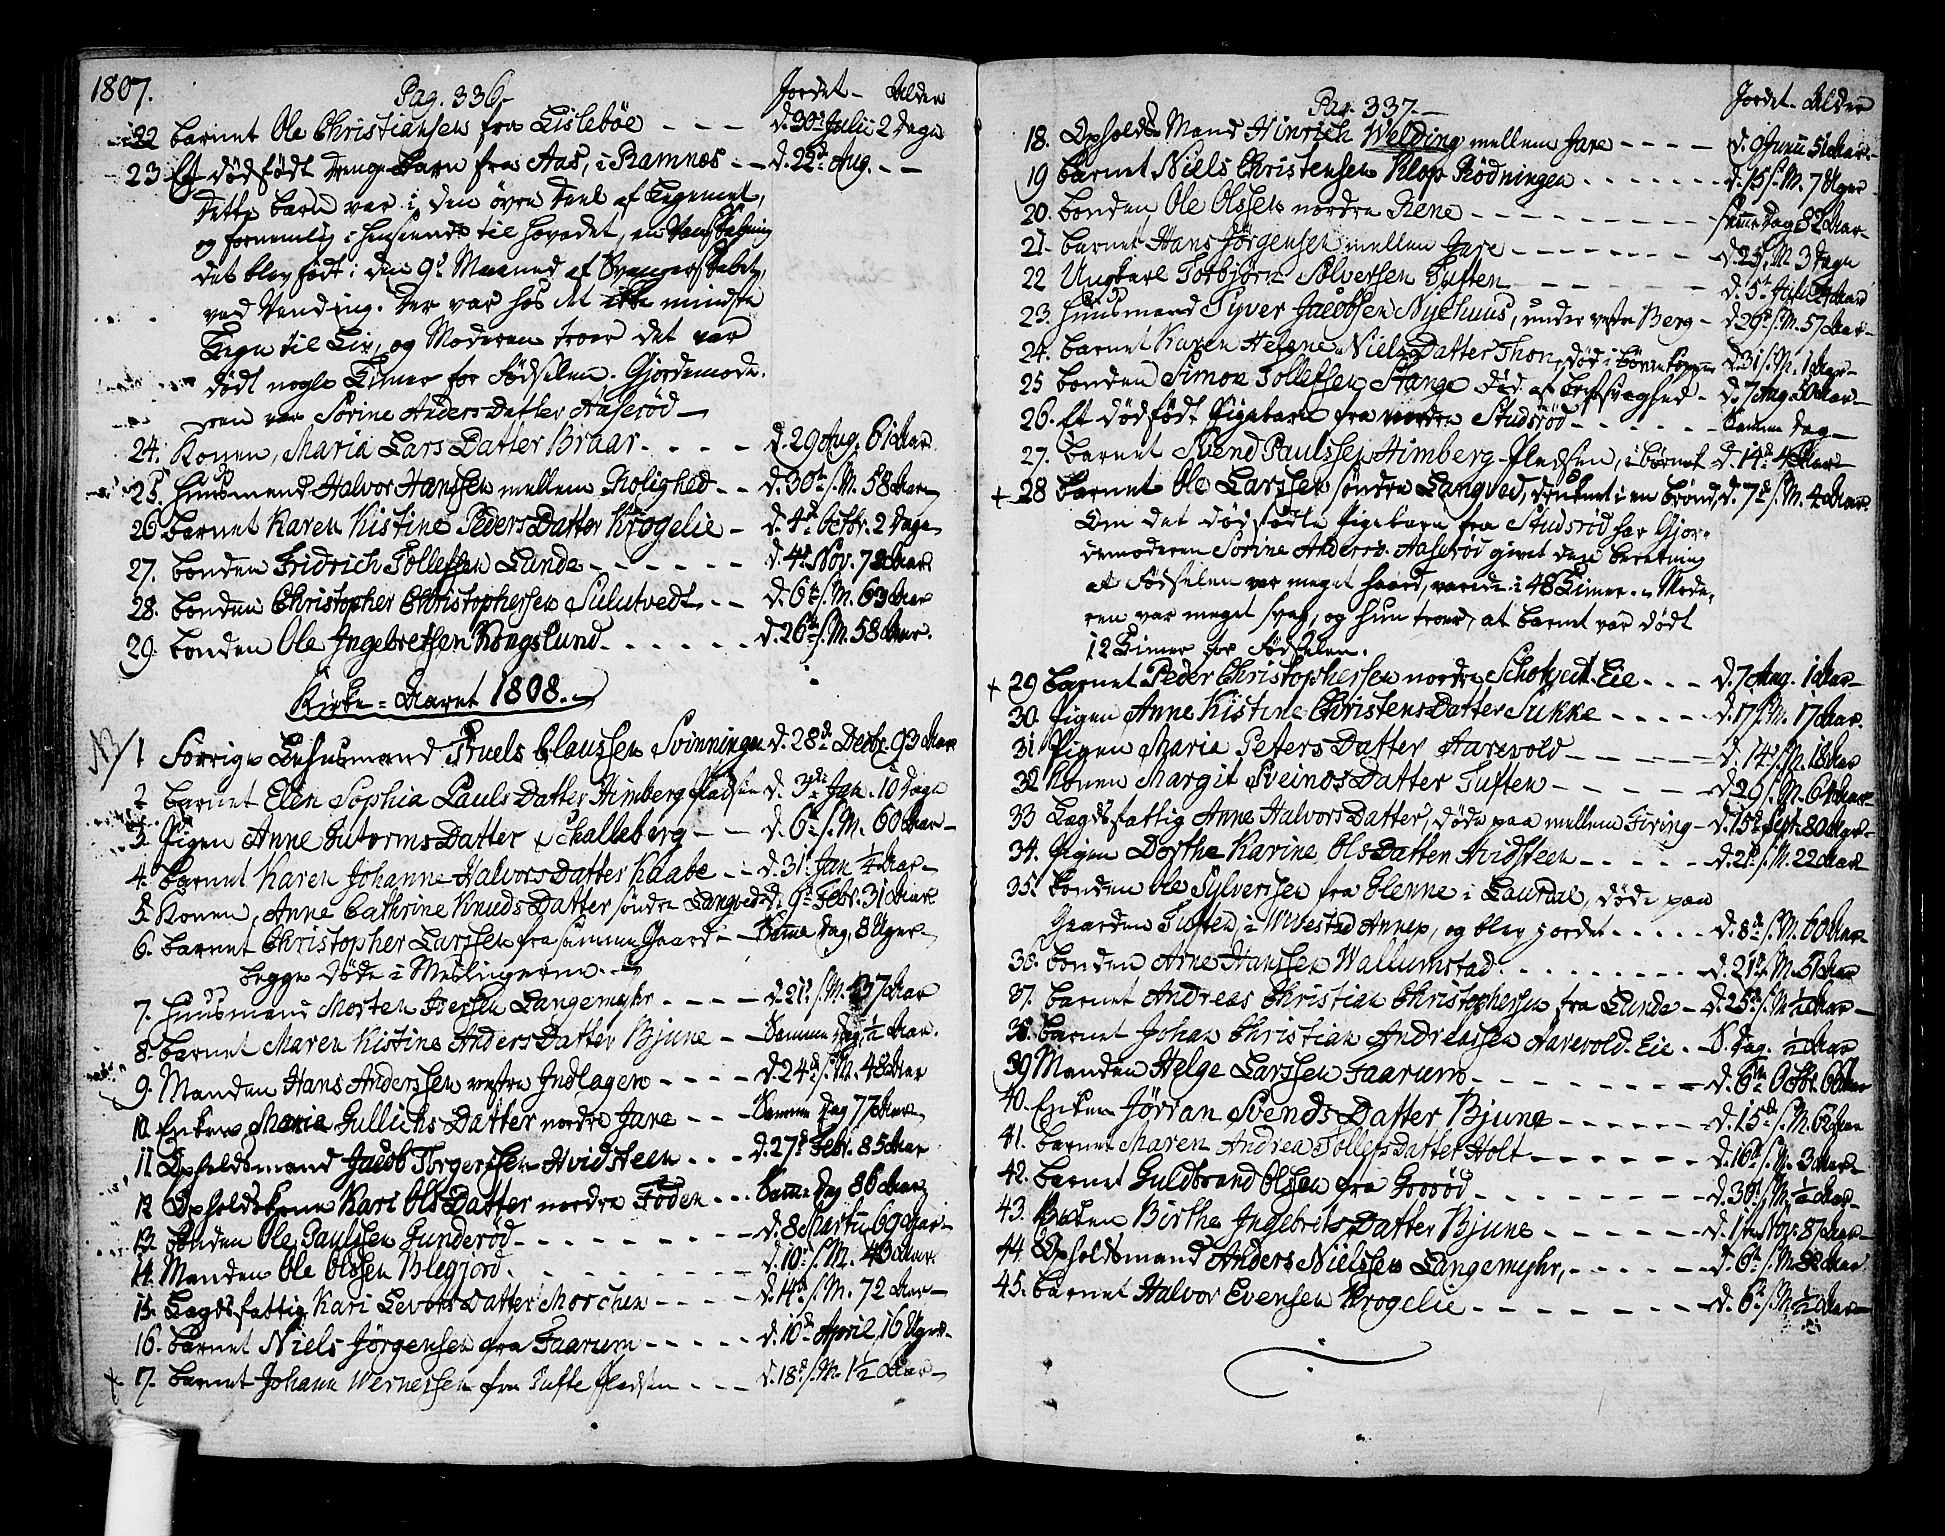 1807.
Pag. 336.
Jordet - Alder
22 Barnet Ole Christiansen fra Lislebøe - - - d. 30t Julii 2 Dage
23 Et dødfødt Drenge-Barn fra Aas, i Ramnes - - d. 22d Aug. - -
Dette Barn var i den øvre Deel af Legemet,
og fornemlig i Henseende til Hovedet, en Vanskabning
det blev født i den 9d Maaned af Svangerskabet,
ved Vending. Der var hos det ikke mindste
Tegn til Liv, og Moderen troer det var
dødt nogle Timer for Fødselen. Gjordemode-
ren var Sørine AndersDatter Aaserød -
24. Konen, Maria LarsDatter Braar. - - - d. 29 Aug. 61 Aar
25. Huusmand Halvor Hanssen mellem Rolighed - - d. 30te s. M. 58 Aar
26 Barnet Karen Kistine PedersDatter Krogelie - d. 4d Octbr. 2 Dage
27. Bonden Fridrich Tollefssen Lunde - - - - - - d. 4d Nov. 72 Aar
28. Bonden Christopher Christophersen Sulutvedt - - d. 6te s. M. 63 Aar
29. Bonden Ole Ingebretsen Kongslund. - - - - - d. 26te s. M. 58 Aar.
Kirke-Aaret 1808.
NB/ 1 Forrige Lehnsmand Truels Claussen Svinningen d. 28de Decbr. 93 Aar
2 Barnet Elen Sophia PaulsDatter Himberg Pladsen d. 3die Jan. 10 Dage
3. Pigen Anne GutormsDatter Schalleberg - - d. 6te s. M. 60 Aar -
4. Barnet Karen Johanne HalvorsDatter Raabe - - d. 31t Jan ¼ Aar -
5. Konen, Anne Cathrine KnudsDatter søndre Langved d. 9de Febr. 31 Aar
6. Barnet Christopher Larssen fra samme Gaard - - Samme Dag, 8 Uger -
begge døde i Meslingerne.
7. Huusmand Morten Iversen Langemyhr - - - - d. 21t s. M. 37 Aar
8. Barnet Maren Kistine AndersDatter Bjune - - Samme Dag, ½ Aar.
9. Manden Hans Anderssen vestre Indlagen - - - - d. 24de s. M. 48 Aar
10. Enken Maria GullichsDatter nordre Jare - - - Samme Dag 77 Aar
11. Opholdsmand Jacob Torgerssen Hvidsteen - - - d. 27d Febr. 85 Aar
12 Opholdskone Kari OlsDatter nordre Foden - - - Samme Dag 86 Aar
13. Bonden Ole Paulssen Gunderød - - - - - - - d. 8 Martii 69 Aar -
14. Manden Ole Olssen Blegjord. - - - - - - - d. 10d s. M. 43 Aar
15. Lægdsfattig Kari LevorsDatter Morchen - - - - d. 14de s. M. 72 Aar -
16. Barnet Niels Jørgensen fra Faarum - - - - - d. 10d April, 16 Uger -
+ 17. Barnet Johann Wernessen fra Tufte Pladsen - - - d. 18d s. M. 1½ Aar -
Pag. 337. -
Jordet - Alder
18. Opholds-Mand Hinrich Welding mellem Jare - - - - d. 9 Junii 51 Aar -
19 Barnet Niels Christensen Klop Rødningen - - - - - - d. 15 s. M. 7 Uger
20. Bonden Ole Olssen nordre Rene - - - - - - - - - Samme Dag 82 Aar -
21. Barnet Hans Jørgensen mellem Jare - - - - - - - d. 25 s. M. 3 Dage
22 Ungkarl Torbjørn Sølverssen Tuften - - - - - - - d. 5te Julii Aar
23. Huusmand Syver Jacobssen Nyehuus, under vestre Berg - d. 29d s. M. 57 Aar -
24. Barnet Karen Helene NielsDatter Thon, død i Børnekopper d. 31 s. M. 1 Aar -
25 Bonden Simon Tollefsen Stange død af Brystsvaghed - d. 7 Aug. 50 Aar -
26. Et dødfødt Pigebarn fra nordre Studsrød - - - - - - Samme Dag -
27. Barnet Svend Paulssen Himberg-Pladsen, i Børnek d. 14de 4 Aar -
+ 28 Barnet Ole Larssen søndre Langved, druknet i en Brønd, d. 7d s. M. 4 Aar.
Om det dødfødte Pigebarn fra Studsrød har Gjor-
demoderen Sørine Andersd. Aaserød givet den Beretning
at Fødselen var meget haard, varede i 48 Timer. Mode-
ren var meget svag, og hun troer, at Barnet var dødt
12 Timer for Fødselen.
+ 29 Barnet Peder Christophersen nordre Schotvedt-Eie - - - d. 7 Aug. 1 Aar -
30. Pigen Anne Kistine ChristensDatter Sukke - - - - - d. 17 s. M. 17 Aar.
31 Pigen Maria PetersDatter Aarevold - - - - - - - d. 14d s. M. 18 Aar
32 Konen Margit SveinosDatter Tuften - - - - - - - d. 29 s. M. 61 Aar
33 Lægdsfattig Anne HalvorsDatter, døde paa mellem Firing - d. 15d Sept. 80 Aar -
34. Pigen Dorthe Karine OlsDatter Hvidsteen - - - - - d. 21t s. M. 22 Aar
35. Bonden Ole Sylverssen fra Glenne i Laurdal, døde paa
Gaarden Tuften, i Hvivestad Annex, og blev jordet - - - - - d. 8de s. M. 60 Aar -
36. Bonden Arne Hanssen Wallumstad. - - - - - - - - d. 21d s. M. 51 Aar
37. Barnet Andreas Christian Christophersen fra Lunde - d. 25de s. M. ½ Aar -
38. Barnet Johan Christian Andreassen Aarevold-Eie - S. Dag. ½ Aar
39 Manden Helge Larssen Faarum - - - - - - - - - d. 6te Octbr. 66 Aar
40. Enken Jörran SvendsDatter Bjune - - - - - - - d. 15de s. M. 62 Aar
41. Barnet Maren Andrea TollefsDatter Holt - - - - - - d. 16d s. M. 3 Aar -
42. Barnet Guldbrand Olssen fra Gorød - - - - - - - - d. 30t s. M. ¼ Aar -
43. Enken Birthe IngebritsDatter Bjune - - - - - - d. 1ste Nov. 87 Aar -
44. Opholdsmand Anders Nielssen Langemyhr, - - - - - d. 6te s. M. 82 Aar
45. Barnet Halvor Evensen Krogelie - - - - - - - d. 6te s. M. ½ Aar -